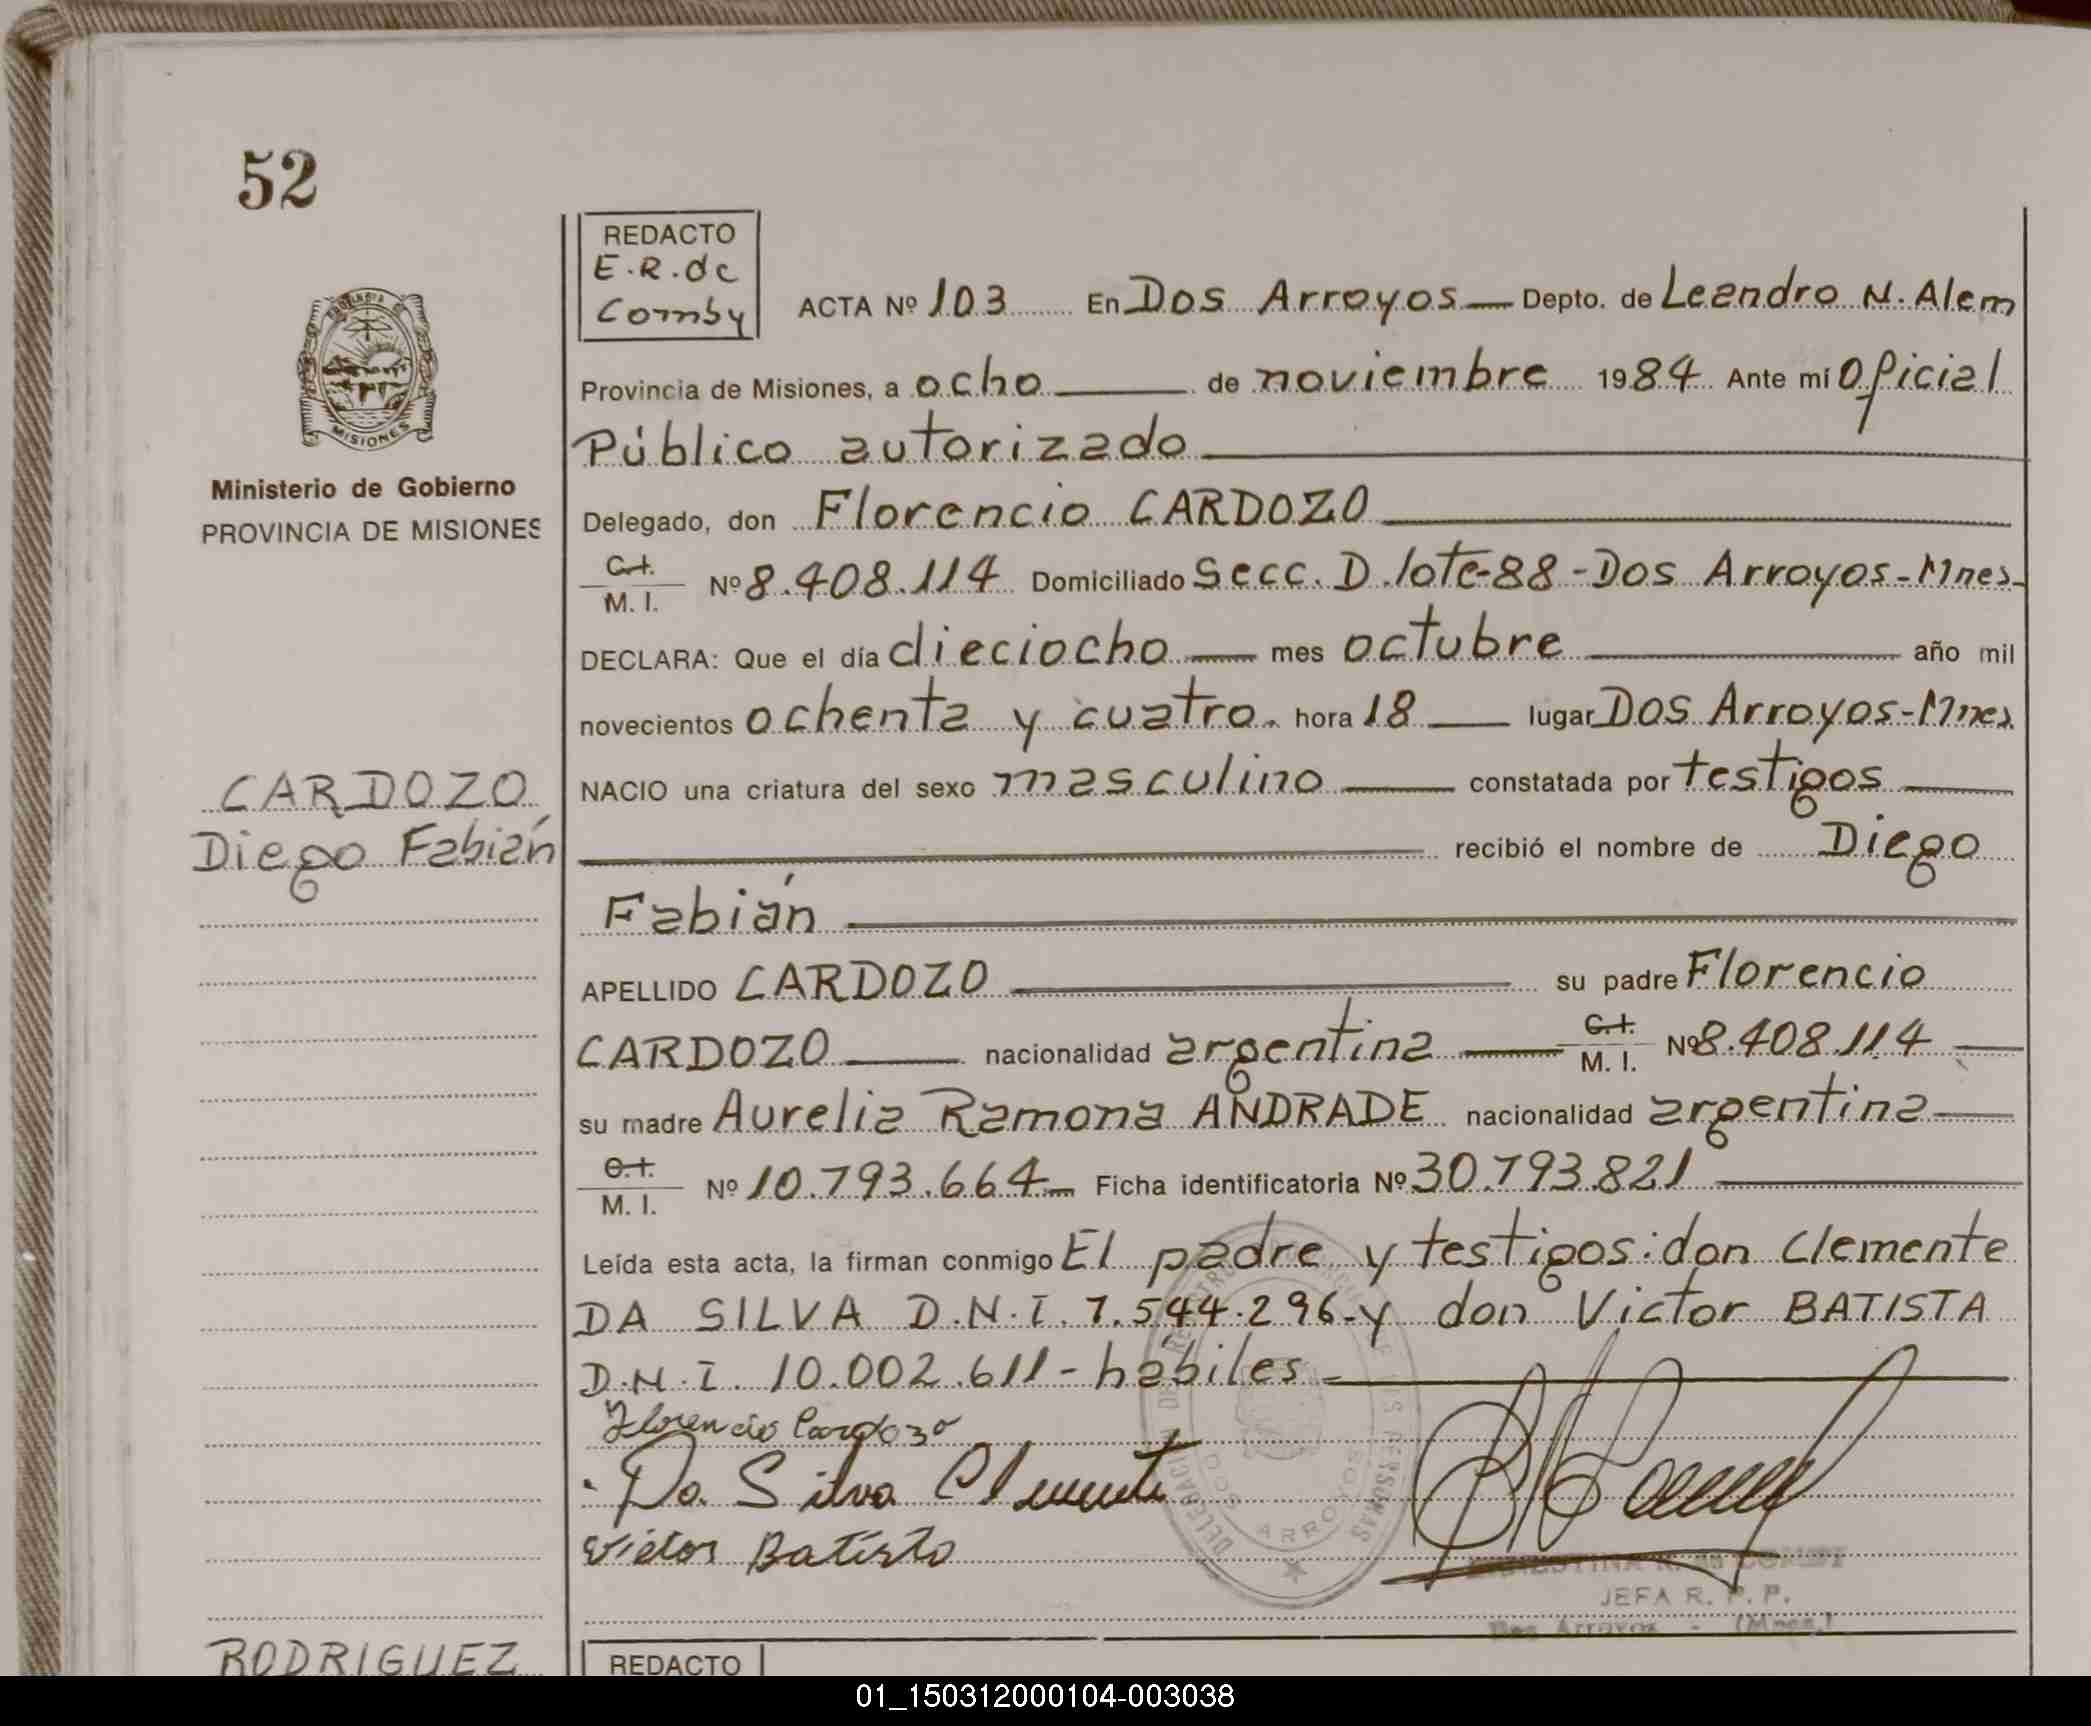 52
REDACTO
E.R.de
Comby
ACTA Nº 103 En Dos Arroyos — Depto. de Leandro N. Alem
Provincia de Misiones, a ocho de noviembre 1984 Ante mí Oficial
Público autorizado
Delegado, don Florencio CARDOZO
C.I.
M. I. Nº 8.408.114 Domiciliado Secc. D. lote-88-Dos Arroyos-Mnes-
DECLARA: Que el día dieciocho — mes octubre año mil
novecientos ochenta y cuatro. hora 18 lugar Dos Arroyos-Mnes.
NACIO una criatura del sexo masculino constatada por testigos
recibió el nombre de Diego
Fabián
APELLIDO CARDOZO su padre Florencio
CARDOZO nacionalidad argentina C.I.
M. I. Nº 8.408.114
su madre Aurelia Ramona ANDRADE nacionalidad argentina
C.I.
M. I. Nº 10.793.664 Ficha identificatoria Nº 30.793.821
Leída esta acta, la firman conmigo El padre y testigos: don Clemente
DA SILVA D.N.I. 7.544.296-y don Victor BATISTA
D.N.I. 10.002.611-habiles-
Florencio Cardozo
Da Silva Clemente
Victor Batista
DOS ARROYOS
JEFA R. P. P.
Dos Arroyos - (Mnes.)
MISIONES
Ministerio de Gobierno
PROVINCIA DE MISIONES
CARDOZO
Diego Fabián
RODRIGUEZ
REDACTO
01_150312000104-003038